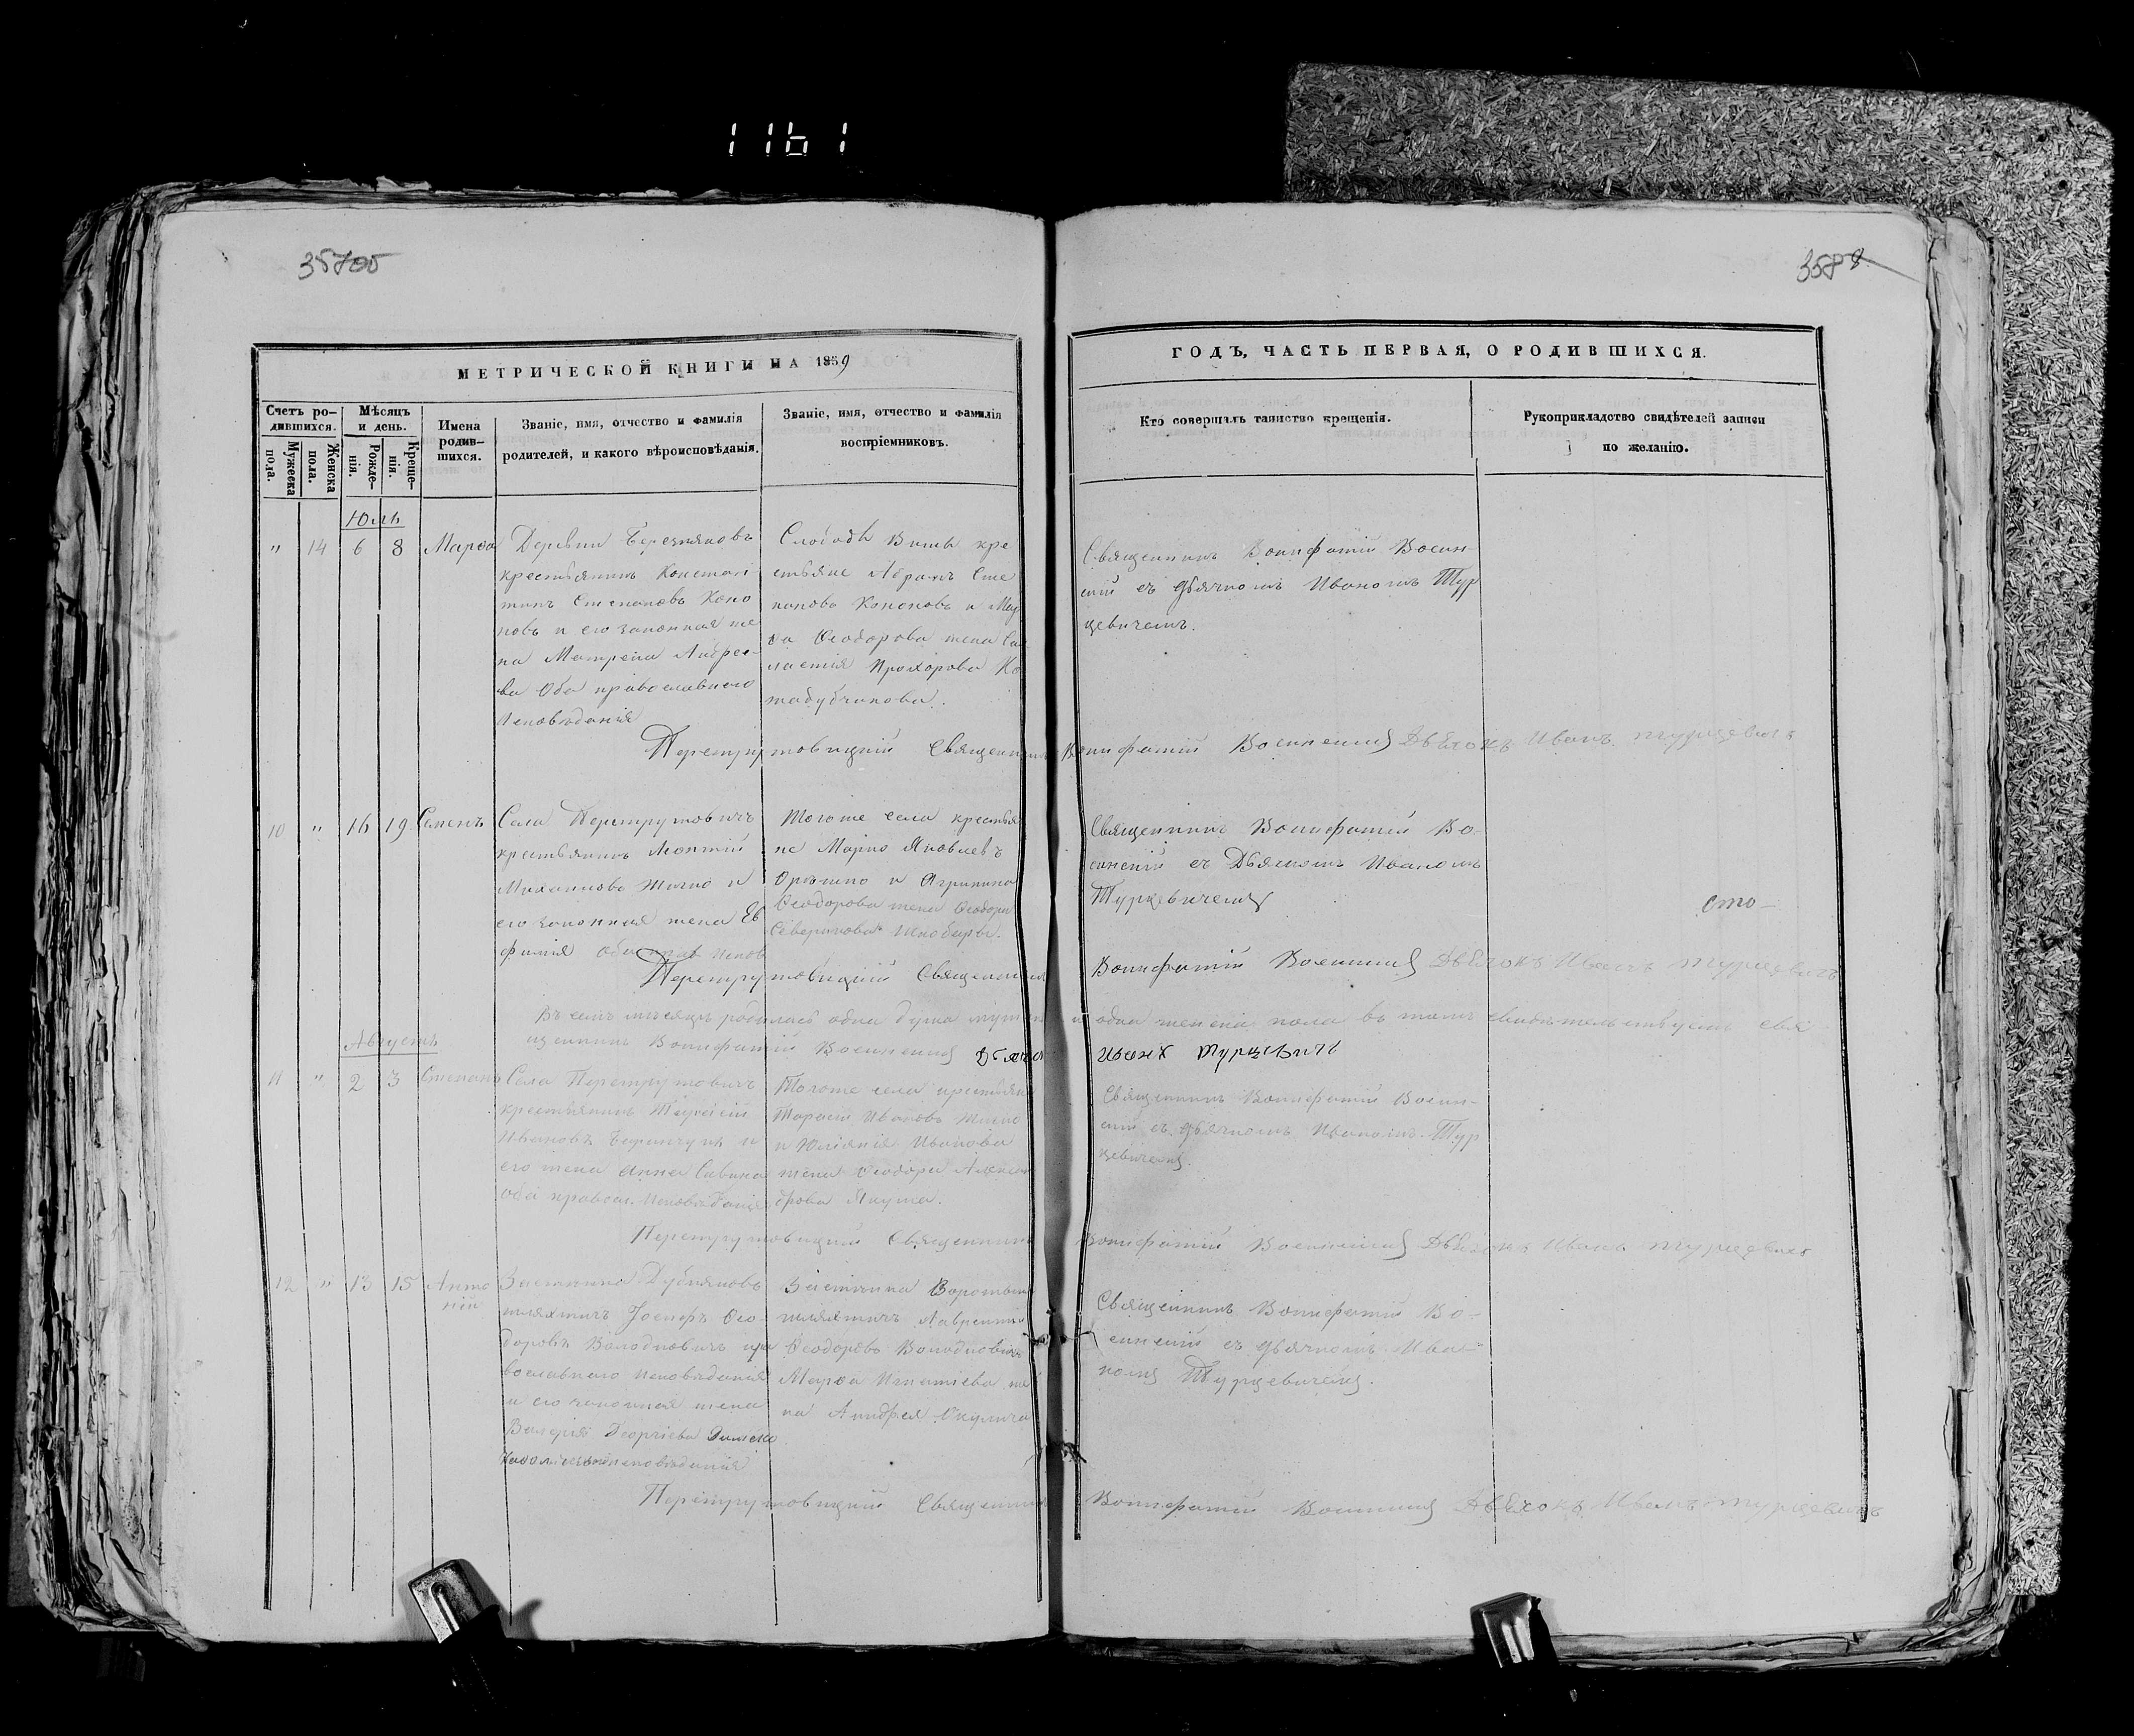 1161
35705
3588
МЕТРИЧЕСКОЙ КНИГИ НА 1859
ГОДЪ, ЧАСТЬ ПЕРВАЯ, О РОДИВШИХСЯ.
Счетъ ро-
дившихся.
Мужеска
пола.
Женска
пола.
Мѣсяцъ
и день.
Рожде-
нія.
Креще-
нія.
Имена
родив-
шихся.
Званіе, имя, отчество и фамилія
родителей, и какого вѣроисповѣданія.
Званіе, имя, отчество и фамилія
воспріемниковъ.
Кто совершалъ таинство крещенія.
Рукоприкладство свидѣтелей записи
по желанію.
Юль
" 14 6 8 Марѳа
Деревни Березняковъ
крестьянинъ Констан
тинъ Степановъ Коно
новъ и его законная же
на Матрена Андрее-
ва Оба православнаго
Исповѣданія
Слободы кре
стьяне Абрамъ Сте
пановъ Кононовъ и Мар
ѳа Ѳеодорова жена
Прохорова
Священникъ Вонифатій Восин-
скій съ дьячкомъ Иваномъ Тур
цевичемъ.
Перетрутовицкій Священникъ Вонифатій Восинскій Дьячокъ Иванъ Турцевичъ
10 " 16 19 Семенъ
Села Перетрутовичъ
крестьянинъ Леонтій
Михаиловъ и
его законная жена Ев
фимія оба прав испов
Тогоже села крестья
не Марко Яковлевъ
и Агрипина
Ѳеодорова жена Ѳеодора
Северинова
Священникъ Вонифатій Во-
синскій съ Дьячкомъ Иваномъ
Турцевичемъ
сто-
Перетрутовицкій Священникъ Вонифатій Восинскій Дьячокъ Иванъ Турцевичъ
Въ семъ мѣсяцѣ родилась одна душа мужеска и одна женска пола въ томъ свидѣтельствуемъ свя
щенникъ Вонифатій Восинскій Дьячокъ Иванъ Турцевичъ
Августъ
11 " 2 3 Степанъ
Села Перетрутовичъ
крестьянинъ
Ивановъ и
его жена Анна Савина
оба правосл. Исповѣданія
Тогоже села крестьяне
Тарасъ Ивановъ
и Юліянія Иванова
жена Ѳеодора Алексан
дрова
Священникъ Вонифатій Восин-
скій съ дьячкомъ Иваномъ Тур
цевичемъ.
Перетрутовицкій Священникъ Вонифатій Восинскій Дьячокъ Иванъ Турцевичъ
12 " 13 15 Анто
ній
Застѣнка Дубняковъ
шляхтичъ Іосифъ Ѳео
доровъ Володковичъ пра
вославнаго исповѣданія
и его законная жена
Валерія Георгіева Римско
Католическаго исповѣданія
Застѣнка
шляхтичъ Лаврентій
Ѳеодоровъ Володковичъ
Марѳа Игнатіева же
на Андрея
Священникъ Вонифатій Во-
синскій съ дьячкомъ Ива-
номъ Турцевичемъ.
Перетрутовицкій Священникъ Вонифатій Восинскій Дьячокъ Иванъ Турцевичъ